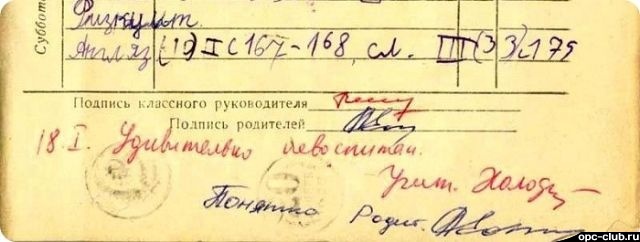 Суббота
Физкульт.
Англ яз (10) I с 167-168, сл. III (33) с 175
Подпись классного руководителя
Подпись родителей
18.I. Удивительно невоспитан.
Учит.
Понятно Родит.
opc-club.ru